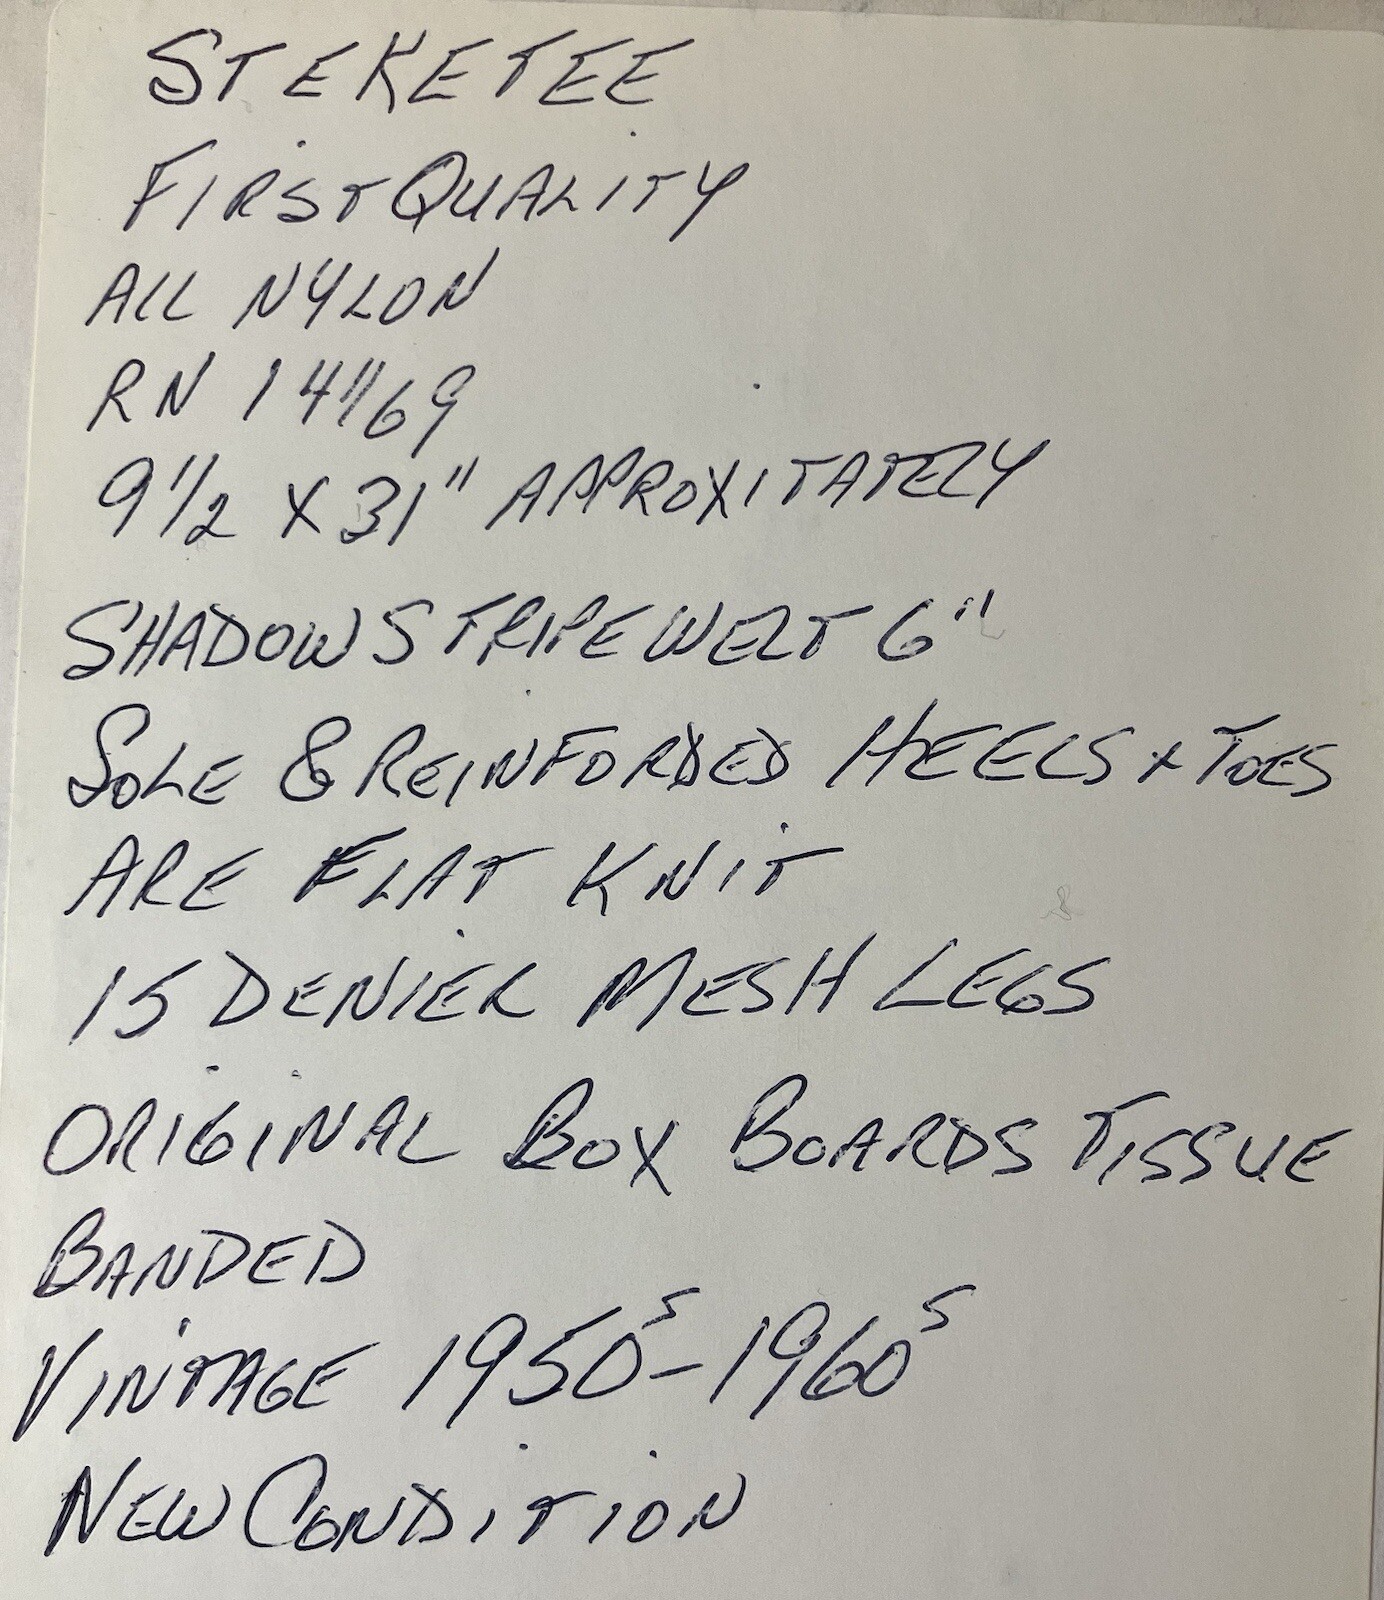 STEKETEE
FIRST QUALITY
ALL NYLON
RN 141169
9 1/2 X 31" APPROXITATELY
SHADOW STRIPE WELT 6"
SOLE & REINFORDED HEELS + TOES
ARE FLAT KNIT
15 DENIER MESH LEGS
ORIGINAL BOX BOARDS TISSUE
BANDED
VINTAGE 1950s - 1960s
NEW CONDITION